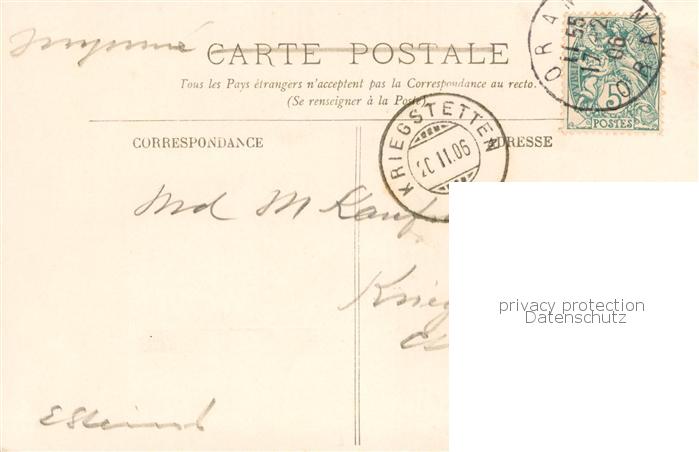 Imprimé
CARTE POSTALE
Tous les Pays étrangers n'acceptent pas la Correspondance au recto.
(Se renseigner à la Poste)
CORRESPONDANCE
ADRESSE
KRIEGSTETTEN
20 II.06
ORAN
ORAN
5
POSTES
Md M Kauf
Krieg
privacy protection
Datenschutz